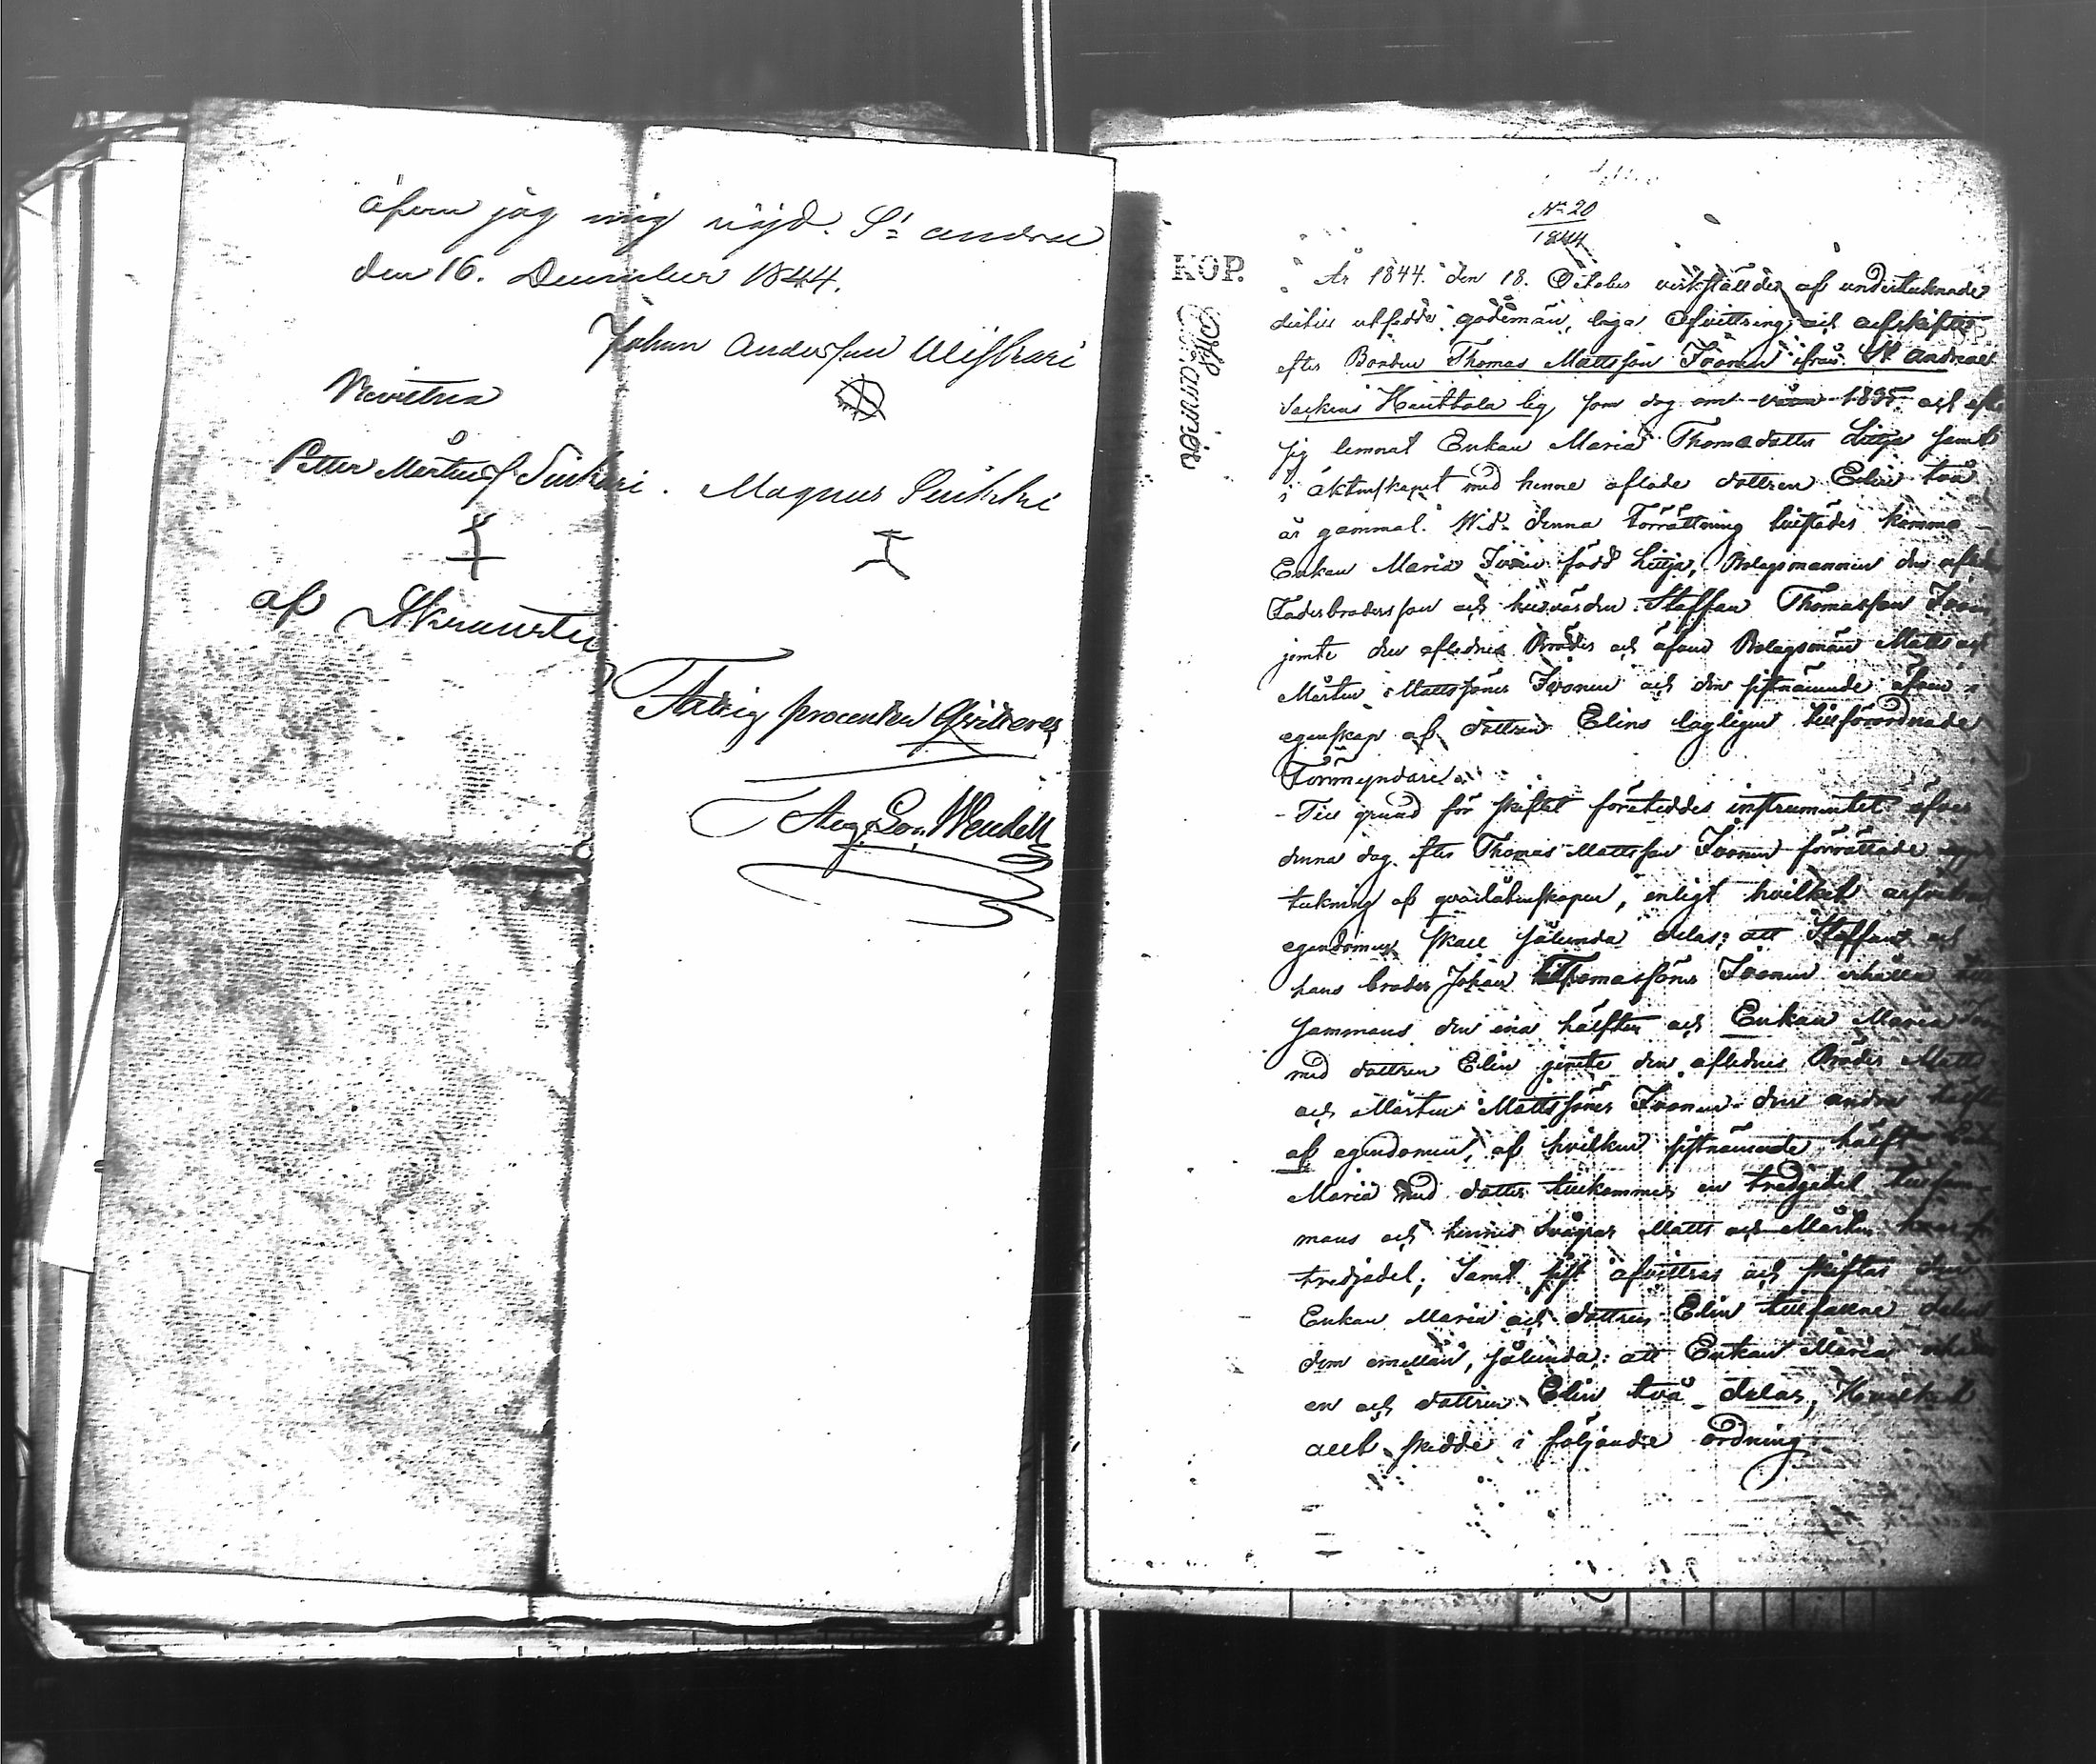 åfven jag mig nöjd. St andrae
den 16. December 1844.
Johan Andersson
Bevittna
Petter Mårtenss. Suikari. Magnus Suikki
af
Fattig procenten qvitteras
Aug. Wendell
No 20
1844
KOP.
År 1844. den 18. October verkställdes af undertecknade
dertill utsedde godemän, laga afvittring och arfskifte
efter Bonden Thomas Mattsson Ivonen ifrån St andreae
Sockens Hauttola by, som dog om våren 1835. och efter
sig lemnat Enkan Maria Thomædotter Litja samt
i äktenskapet med henne aflade dottren Elin två
år gammal. Wid denna Förrättning tillstädes komma
Enkan Maria Ivoin född Litja, Bolagsmannen den aflednes
Faders brorsson och husvärden Staffan Thomasson Ivonen
jemte den aflednes Bröder och äfven Bolagsmän Matts och
Mårten Mattssöner Ivonen och den sistnämnde äfven i
egenskap af dottren Elins lagligen tillförordnade
Förmyndare.
- Till grund för skiftet företeddes instrumentet öfver
denna dag efter Thomas Mattsson Ivonen förrättade upp
tekning af qvarlåtenskapen, enligt hvilket
egendomen skall sålunda delas: att Staffan och
hans broder Johan Thomassöner Ivonen erhålla till
sammans den ena hälften och Enkan Maria
med dottren Elin jemte den aflednes Bröder Matts
och Mårten Mattssöner Ivonen den andra hälft
af egendomen, af hvilken sistnämnde hälft
Maria med dotter tillkommer en tredjedel tillsam
mans och hennes Svågrar Matts och Mårten hvar sin
tredjedel; Samt sist afvittras och skiftas den
Enkan Maria och dottren Elin tillfallne delen
dem emellan, sålunda: att Enkan Maria erhåller
en och dottren Elin två delar, Hvilket
allt skedde i följande ordning